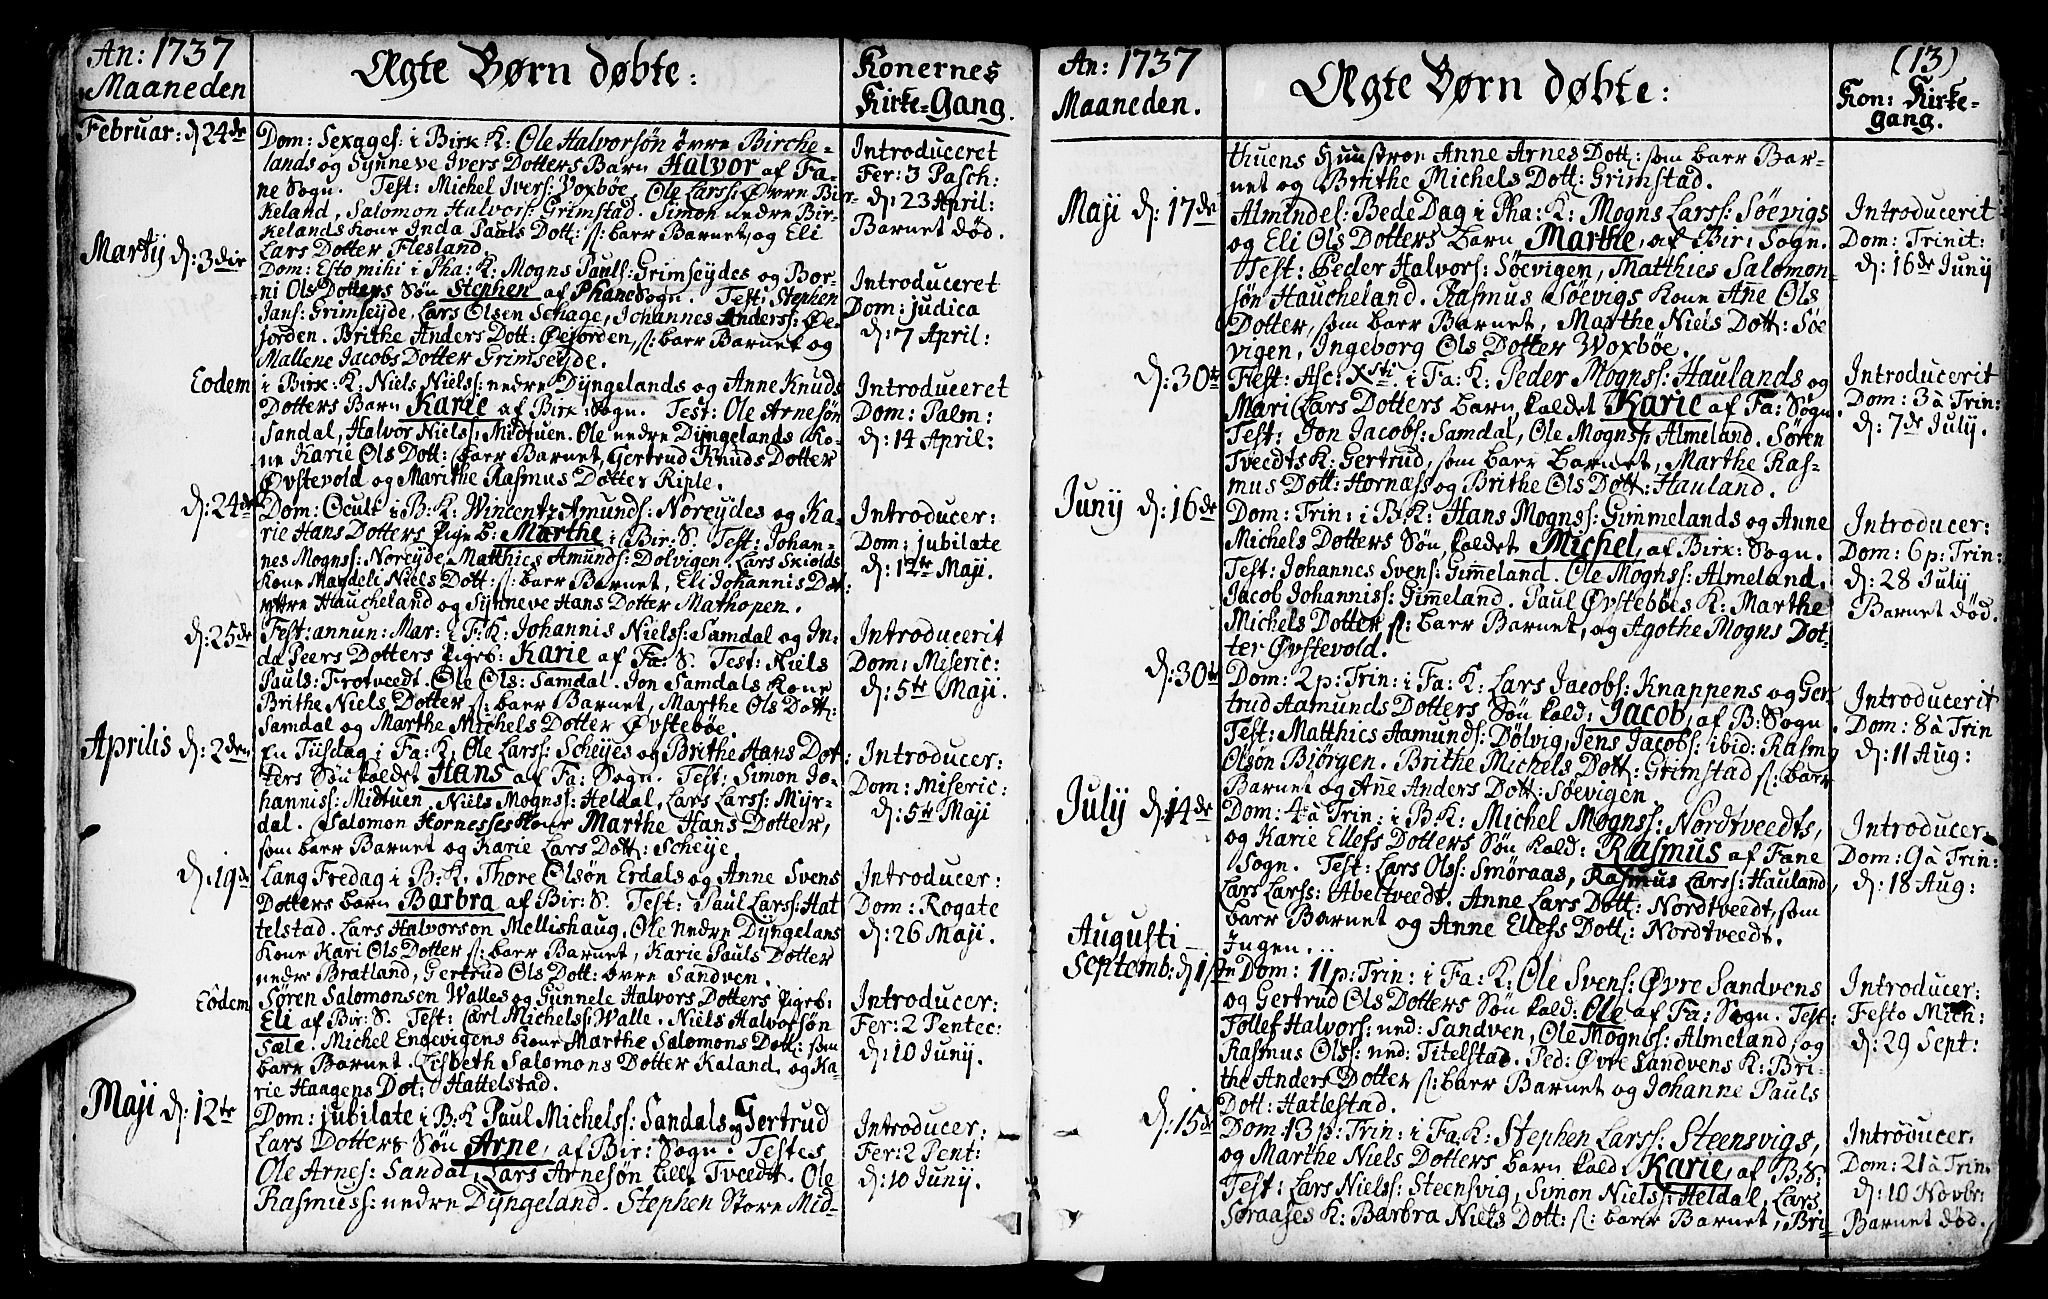 An: 1737
Maaneden
Ægte Børn døbte:
Konernes
Kirke-Gang.
Februar: d; 24de
Dom: Sexages: i Birk K: Ole Halvorsøn øvre Birche-
lands og Synneve Ivers Dotters Barn Halvor af Fa-
ne Sogn. Test: Michel Ivers: Voxbøe, Ole Larss: Øvre Bir-
keland, Salomon Halvors: Grimstad. Simon nedre Bir-
kelands Kone Inda Pauls Dott: s: barr Barnet, og Eli
Lars Dotter Flesland.
Introduceret
Fer: 3 Pasch:
d: 23 April:
Barnet død.
Martij d: 3die
Dom: Esto mihi i Pha: K: Mogns Pauls: Grimseydes og Bor-
ni Ols Dotters Søn Stephen af Phane Sogn. Test: Stephen
Jans: Grimseyde, Lars Olsen Schage, Johannes Anderss: Øe-
jorden. Brithe Anders Dott: Øejorden, s: barr Barnet og
Mallene Jacobs Dotter Grimseyde.
Introduceret
Dom: judica
d: 7 April:
Eodem
i Birk: K: Niels Niels: nedre Dyngelands og Anne Knuds
Dotters Barn Karie af Birk: Sogn. Test: Ole Arnesøn
Sandal, Halvor Niels: Midtuen. Ole nedre Dyngelands Ko-
ne Karie Ols Dott: s barr Barnet, Gertrud Knuds Dotter
Øvstevold og Marithe Rasmus Dotter Riple.
Introduceret
Dom: Palm:
d: 14 April:
d: 24de
Dom: Oculi i B: K: Wincentz Amunds: Noreydes og Ka-
rie Hans Dotters Pigeb: Marthe i Bir: S. Test: Johan-
nes Mognss: Noreyde, Matthies Amunds: Dolvigen. Lars Skiolds
Kone Magdeli Niels Dott: s: barr Barnet, Eli Johannis Dot:
yttre Haucheland og Synneve Hans Dotter Mathopen.
Introducer:
Dom: jubilate
d: 12te Maji.
d: 25de
Fest: annun: Mar: i F: K: Johannis Niels: Samdal og In-
da Peers Dotters Pigeb: Karie af Fa: S. Test: Niels
Pauls: Frotveedt. Ole Ols: Samdal. Jon Samdals Kone
Brithe Niels Dotter s: barr Barnet, Marthe Ols Dott:
Samdal og Marthe Michels Dotter Øvstebøe.
Introducerit
Dom: Miseric:
d: 5te Maji.
Aprilis d: 2den
En Tiisdag i Fa: K. Ole Larss: Scheyes og Brithe Hans Dot-
ters Søn kaldet Hans af Fa: Sogn. Test: Simon Jo-
hanniss: Midtuen. Niels Mognss: Heldal, Lars Larss: Myr-
dal. Salomon Hornesses Kone Marthe Hans Dotter,
som barr Barnet og Karie Lars Dott: Scheije
Introducer:
Dom: Miseric:
d: 5te Maji
d: 19de
Lang Fredag i B: K. Thore Olsøn Erdals og Anne Svens
Dotters barn Barbra af Bir: S. Test: Paul Larss: Hat
telstad. Lars Halvorson Mellishaug. Ole nedre Dyngelans
Kone Kari Ols Dotter s: barr Barnet, Karie Pauls Dotter
nedre Bratland, Gertrud Ols Dott: øvre Sandven.
Introducer:
Dom: Rogate
d: 26 Maji.
Eodem
Søren Salomonsen Walles og Gunnele Halvors Dotters Pigeb:
Eli af Bir: S. Test: Carl Michelss: Walle. Niels Halvorsøn
Sæle. Michel Engevigens Kone Marthe Salomons Dott: som
barr Barnet. Lisbeth Salomons Dotter Kaland, og Ka-
rie Haagens Dot: Hattelstad.
Introducer:
Fer: 2 Pentec:
d: 10 Junij.
Maji d: 12te
Dom: jubilate i B: K Paul Michelss: Sandals og Gertrud
Lars Dotters Søn Arne, af Bir: Sogn. Testes
Ole Arnes: Sandal, Lars Arnesøn Lill Tveedt. Ole
Rasmuss: nedre Dyngeland. Stephen Store Mid-
Introducer:
Fer: 2 Pent:
d: 10 Junij.
An: 1737
Maaneden.
Ægte Børn døbte:
(13)
Kon: Kirke-
gang.
thuens Huustroe Anne Arnes Dott: som barr Bar-
net og Brithe Michels Dott: Grimstad.
Maji d: 17de
Almindel: Bede Dag i Pha: K: Mogns Larss: Søevigs
og Eli Ols Dotters barn Marthe, af Bir: Sogn.
Test: Peder Halvors: Søevigen, Matthies Salomon-
søn Haucheland. Rasmus Søevigs Kone Ane Ols
Dotter, som barr Barnet, Marthe Niels Dott: Søe
vigen, Ingeborg Ols Dotter Woxbøe.
Introducerit
Dom: Trinit:
d: 16de Juny
d: 30te
Fest: Asc: Xsti. i Fa: K: Peder Mognss: Haulands og
Mari Lars Dotters barn, kaldet Karie af Fa: Sogn.
Test: Jon Jacobs: Samdal, Ole Mognss: Almeland. Søren
Tveedts K: Gertrud, som barr Barnet, Marthe Ras-
mus Dott: Hornæss og Brithe Ols Dott: Hauland.
Introducerit
Dom: 3 à Trin:
d: 7de July.
Juny d: 16de
Dom: Trin: i B: K: Hans Mognss: Gimmelands og Anne
Michels Dotters Søn, kaldet Michel, af Birk: Sogn.
Test: Johannes Svens: Gimeland. Ole Mognss: Almeland.
Jacob Johanniss: Gimeland. Paul Øvstebøes K: Marthe
Michels Dotter s: barr Barnet, og Agothe Mogns Dot-
ter Øvstevold.
Introducer:
Dom: 6 p: Trin:
d: 28 July
Barnet død.
d: 30te
Dom: 2 p: Trin: i Fa: K: Lars Jacobs: Knappens og Ger-
trud Aamunds Dotters Søn kald: Jacob, af B: Sogn
Test: Matthies Aamunds: Dølvig, Jens Jacobs: ibid: Rasmg
Olsøn Biørgen. Brithe Michels Dott: Grimstad s: barr
Barnet og Ane Anders Dott: Søevigen.
Introducerit
Dom: 8 à Trin
d: 11 Aug:
July d: 14de
Dom: 4 à Trin: i B: K: Michel Mognss: Nordtveedts,
og Karie Ellefs Dotters Søn kald: Rasmus af Fane
Sogn. Test: Lars Olss: Smøraas, Rasmus Larss: Hauland,
Lars Larss: Abeltveedt. Anne Lars Dott: Nordtveedt, som
barr Barnet og Anne Ellefs Dott: Nordtveedt.
Introducer:
Dom: 9 à Trin:
d: 18 Aug:
Augusti
Ingen...
Septemb: d: 1ste
Dom: 11 p: Trin: i Fa: K: Ole Svens: Øvre Sandvens
og Gertrud Ols Dotters Søn kald: Ole af Fa: Sogn. Test:
Tollef Halvors: ned: Sandven, Ole Mognss: Almeland, og
Rasmus Olss: ned: Titelstad. Ped: Øvre Sandvens K: Bri-
the Anders Dotter s: barr Barnet og Johanne Pauls
Dott: Hatlestad.
Introducer:
Festo Mich:
d: 29 Sept:
d: 15de
Dom: 13 p: Trin: i Fa: K: Stephen Larss: Steensvigs,
og Marthe Niels Dotters barn kald Karie, af B: S:
Test: Lars Nielss: Steensvig, Simon Niels: Heldal, Lars
Soraases K: Barbra Niels Dott: s: barr Barnet, Bri-
Introducer.
Dom: 21 à Trin.
d: 10 Novbr:
Barnet død.